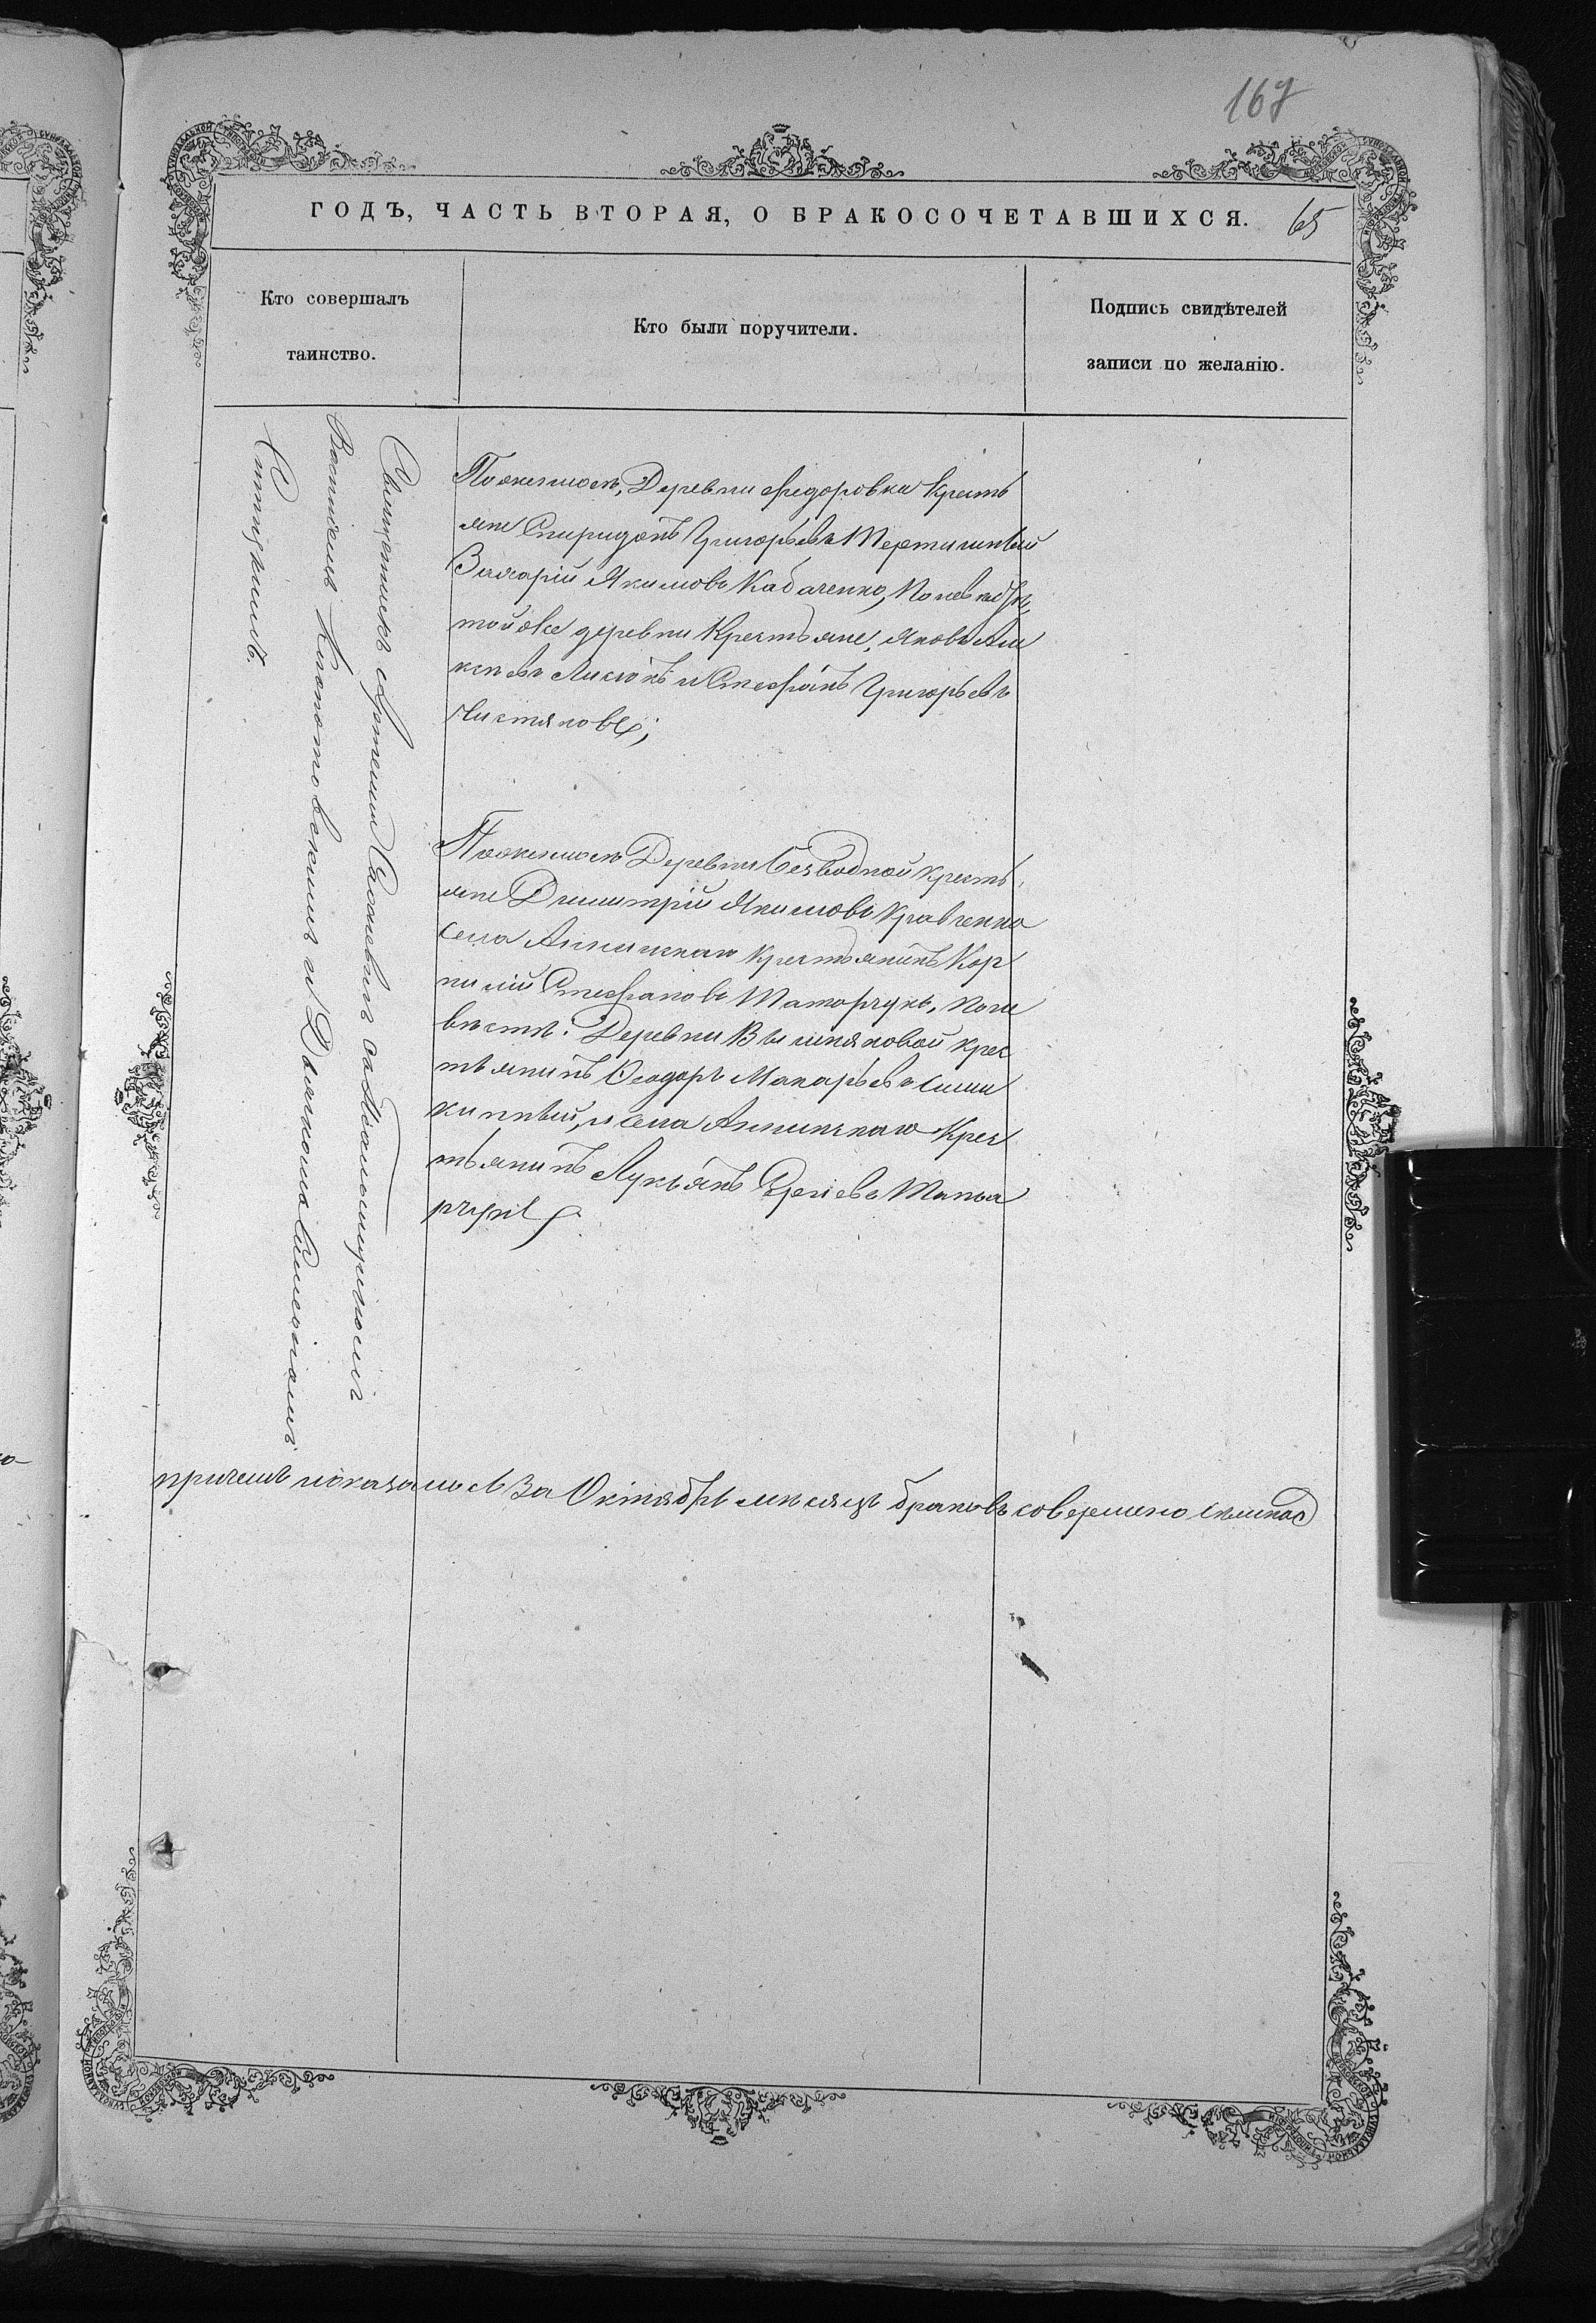 167
ГОДЪ, ЧАСТЬ ВТОРАЯ, О БРАКОСОЧЕТАВШИХСЯ. 65
Кто совершалъ
таинство.
Кто были поручители.
Подпись свидѣтелей
записи по желанію.
Священникъ Артемій съ Псаломщикомъ
Василіемъ и Дьякономъ
По женихѣ, Деревни Федоровки Кресть
яне Спиридонъ Григорьевъ
Захарій Якимовъ Кабаченко, По невѣстѣ
той же деревни Крестьяне, Яковъ Але
ксѣевъ и Стефанъ Григорьевъ
Чистяковъ;
По женихѣ Деревни Безводной кресть
яне Димитрій Якимовъ Кравченко
села Аннинскаго Крестьянинъ Кор
нилій Стефановъ Татарчукъ, По не
вѣстѣ: Деревни Вишняковой крес
тьянинъ Ѳеодоръ Макарьевъ
и села Аннинскаго Крес
тьянинъ Лукьянъ Сергіевъ Тата
рчукъ
причемъ показалось За Октябрь мѣсяцъ браковъ совершено